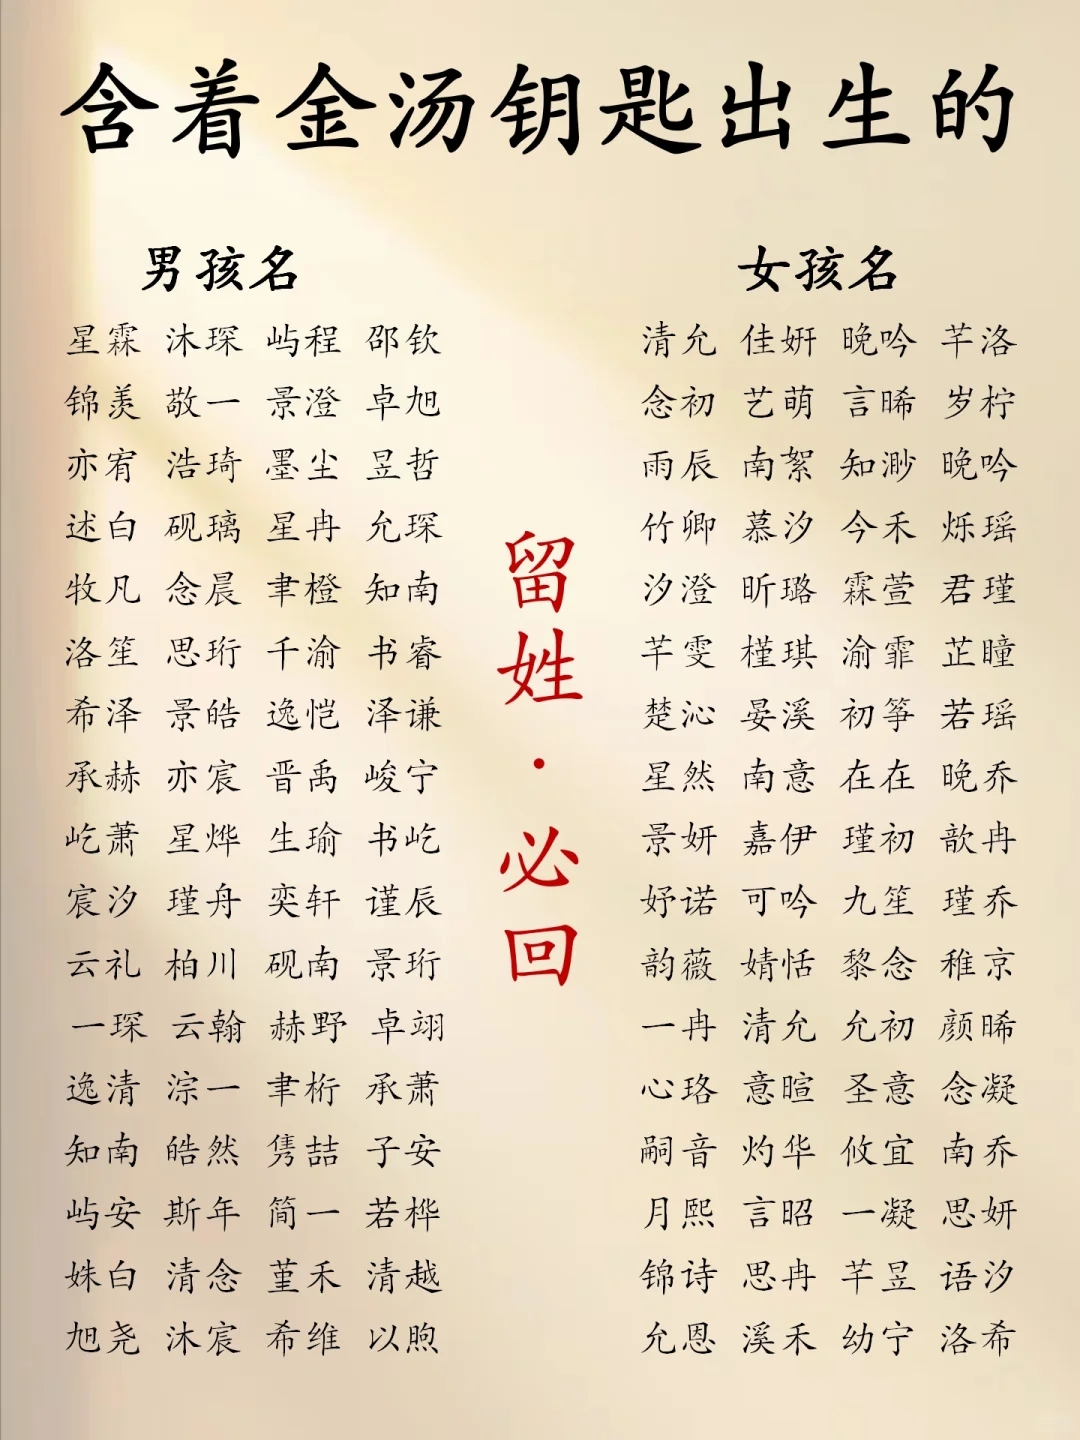 含着金汤钥匙出生的
男孩名
星霖 沐琛 屿程 邵钦
锦羡 敬一 景澄 卓旭
亦宥 浩琦 墨尘 昱哲
述白 砚璃 星冉 允琛
牧凡 念晨 聿橙 知南
洛笙 思珩 千渝 书睿
希泽 景皓 逸恺 泽谦
承赫 亦宸 晋禹 峻宁
屹萧 星烨 生瑜 书屹
宸汐 瑾舟 奕轩 谨辰
云礼 柏川 砚南 景珩
一琛 云翰 赫野 卓翊
逸清 淙一 聿桁 承萧
知南 皓然 隽喆 子安
屿安 斯年 简一 若桦
姝白 清念 堇禾 清越
旭尧 沐宸 希维 以煦
留姓·必回
女孩名
清允 佳妍 晚吟 芊洛
念初 艺萌 言晞 岁柠
雨辰 南絮 知渺 晚吟
竹卿 慕汐 今禾 烁瑶
汐澄 昕璐 霖萱 君瑾
芊雯 槿琪 渝霏 芷瞳
楚沁 晏溪 初筝 若瑶
星然 南意 在在 晚乔
景妍 嘉伊 瑾初 歆冉
妤诺 可吟 九笙 瑾乔
韵薇 婧恬 黎念 稚京
一冉 清允 允初 颜晞
心珞 意暄 圣意 念凝
嗣音 灼华 攸宜 南乔
月熙 言昭 一凝 思妍
锦诗 思冉 芊昱 语汐
允恩 溪禾 幼宁 洛希